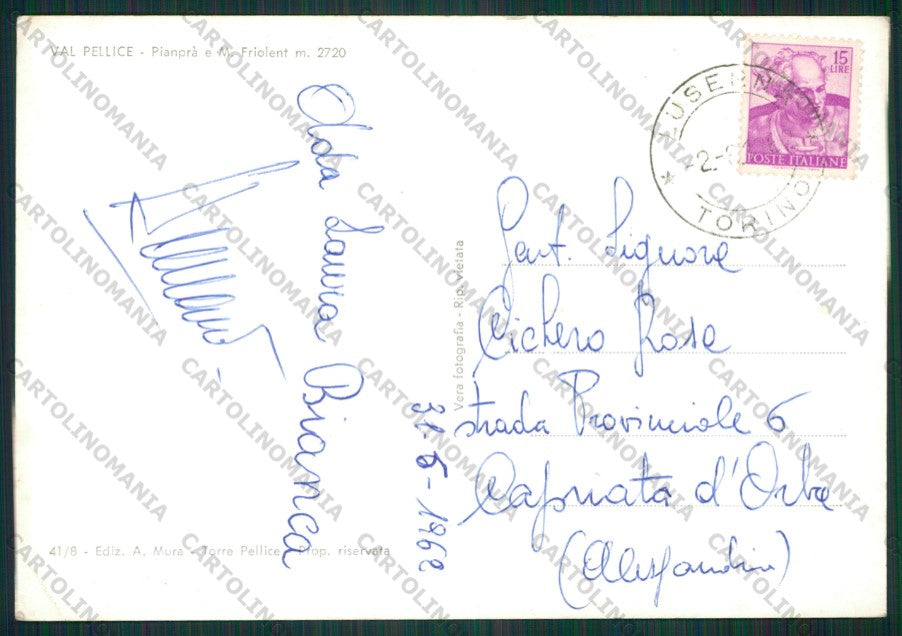 VAL PELLICE - Pianprà e M. Friolent m. 2720
15
LIRE
POSTE ITALIANE
LUSERNA
2-
TORINO
Olda Laura Bianca
31-5-1962
Vera fotografia - Rip. vietata
Gent. Signora
Cichero Rosa
strada Provinciale 6
Capriata d'Orba
(Alessandria)
41/8 - Ediz. A. Mura - Torre Pellice - Prop. riservata
CARTOLINOMANIA